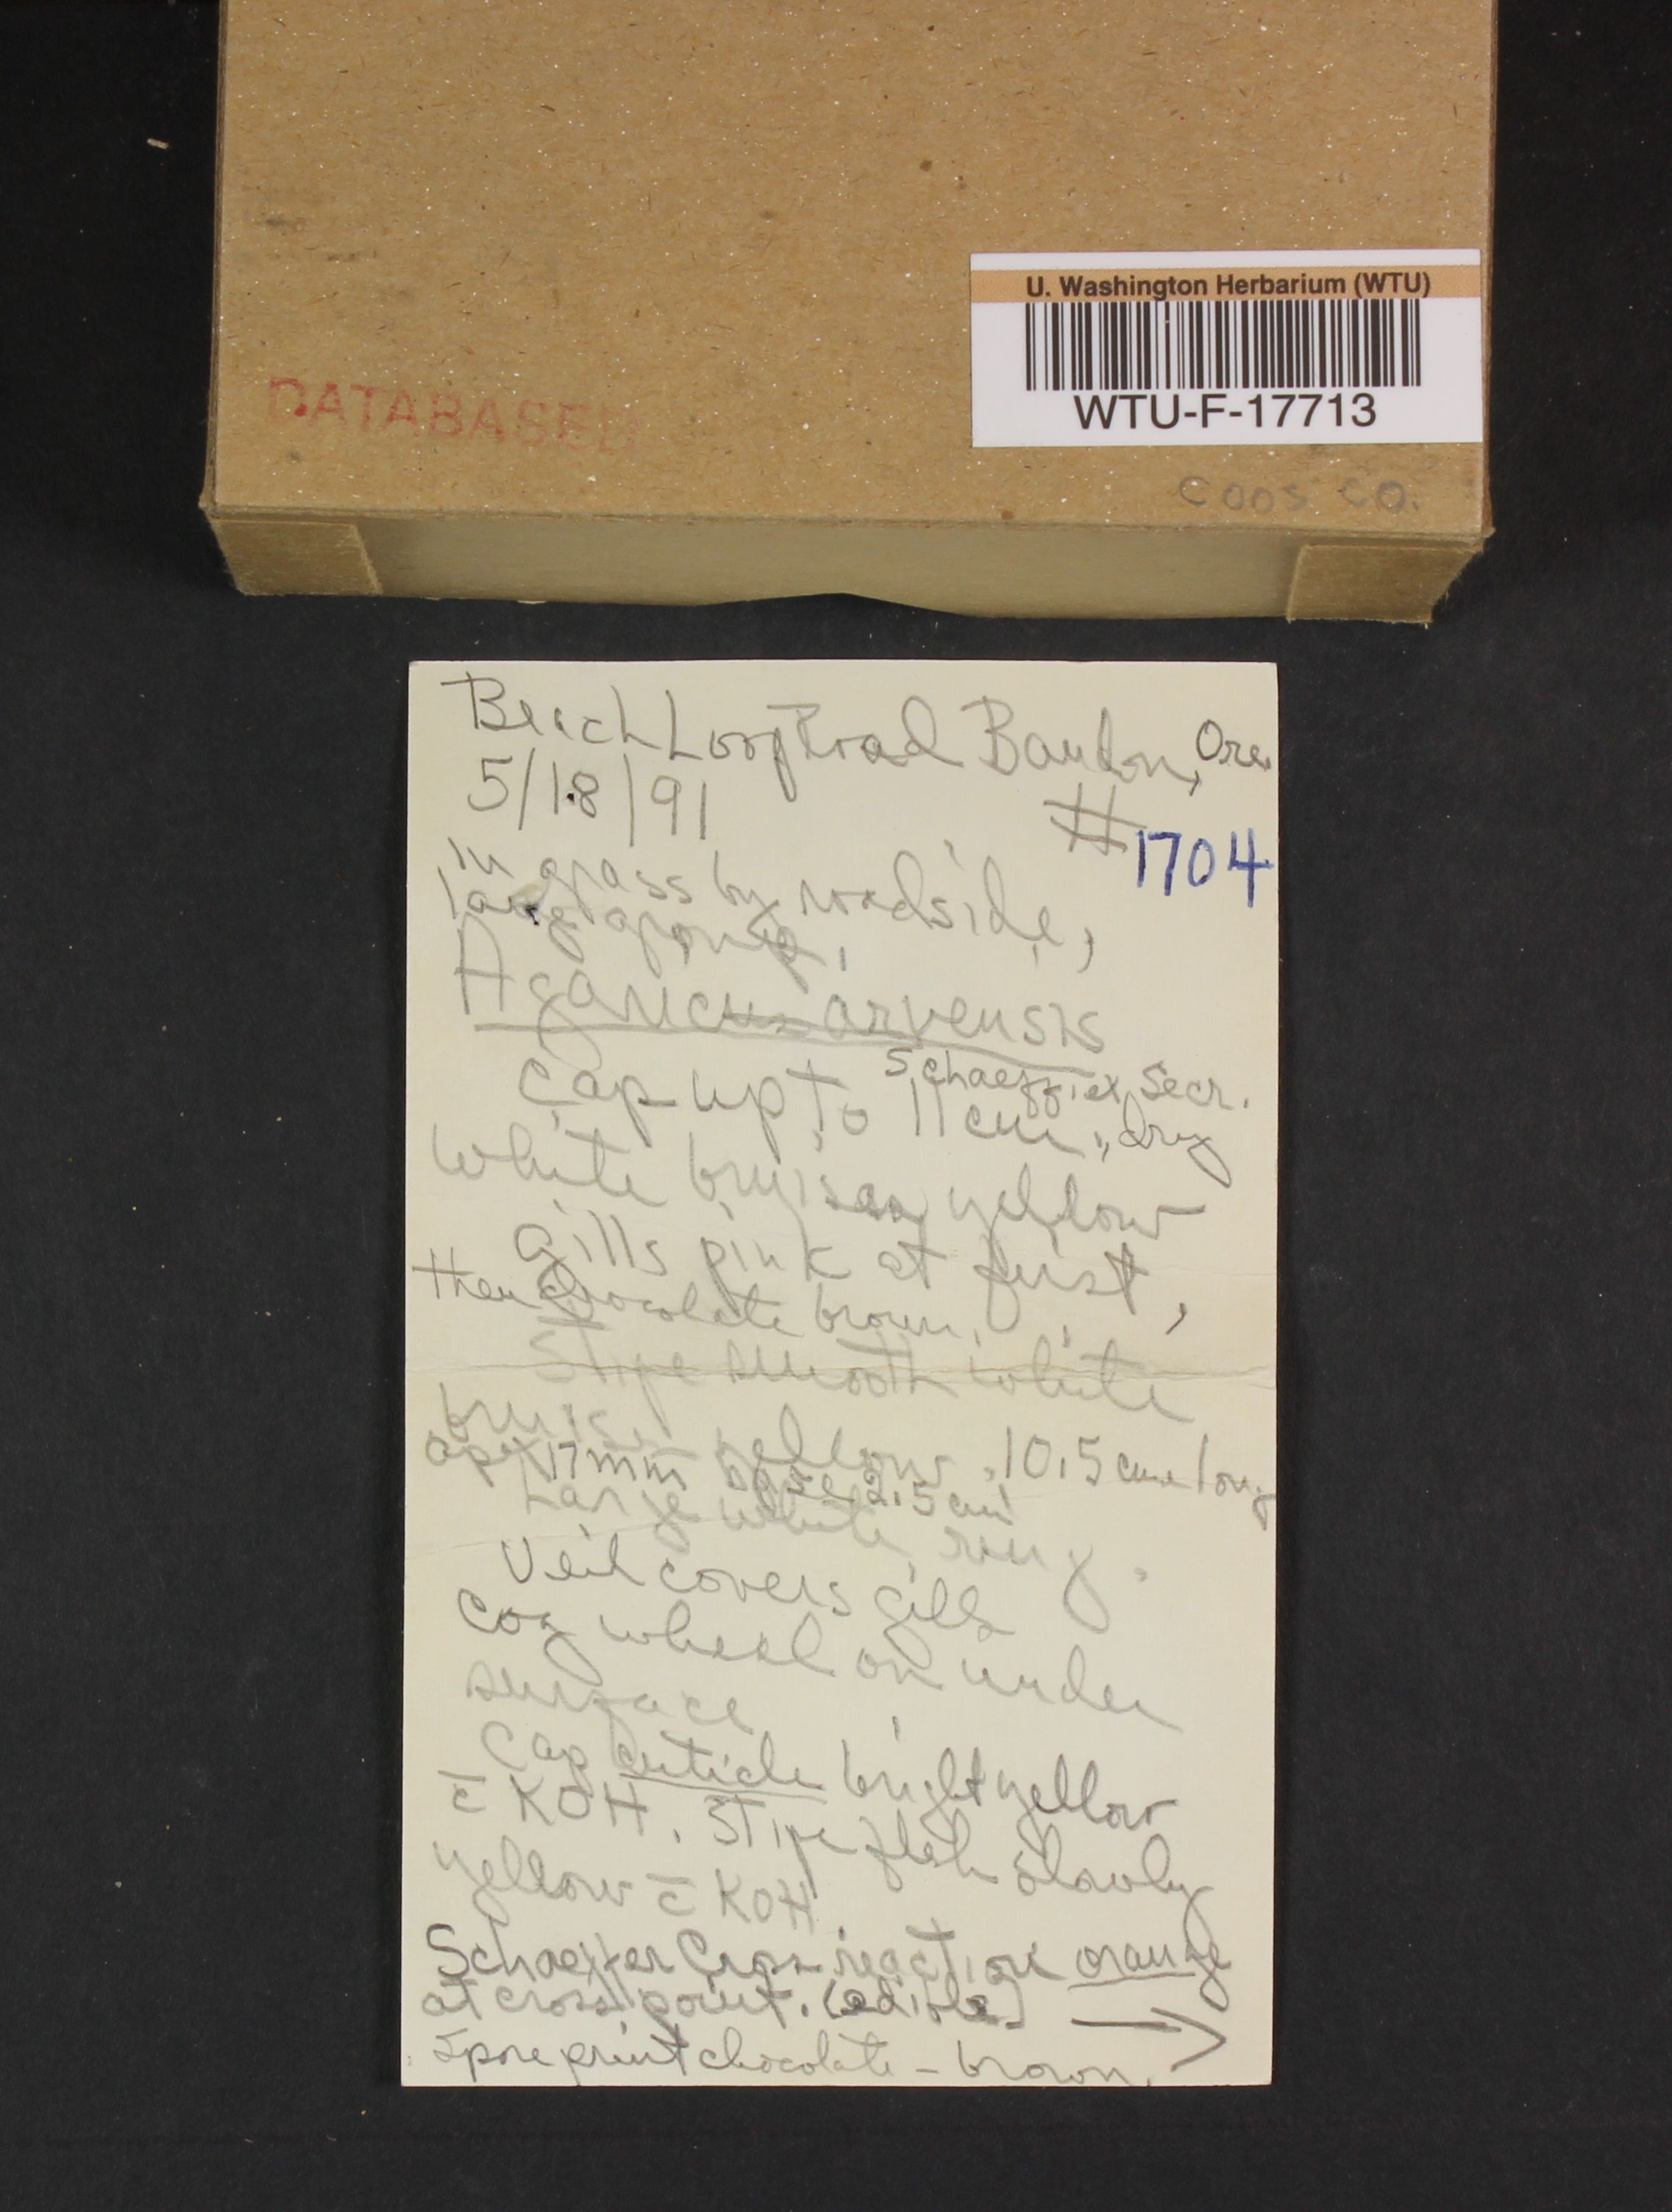 U. Washington Herbarium (WTU)
WTU-F-17713
DATABASED
COOS CO.
Beach Loop Road Bandon, Ore.
5/18/91
#1704
in grass by roadside,
large group.
Agaricus arvensis
Schaeff. ex Secr.
Cap up to 11 cm., dry
white bruises yellow
gills pink at first,
then chocolate brown.
Stipe smooth white
bruises yellow. 10.5 cm long
apex 17mm base 2.5 cm
Large white ring.
Veil covers gills
cog wheel on under
surface
Cap cuticle bright yellow
c̄ KOH. Stipe flesh slowly
yellow c̄ KOH.
Schaeffer Cross reaction orange
at cross point. (edible)
Spore print chocolate-brown. →